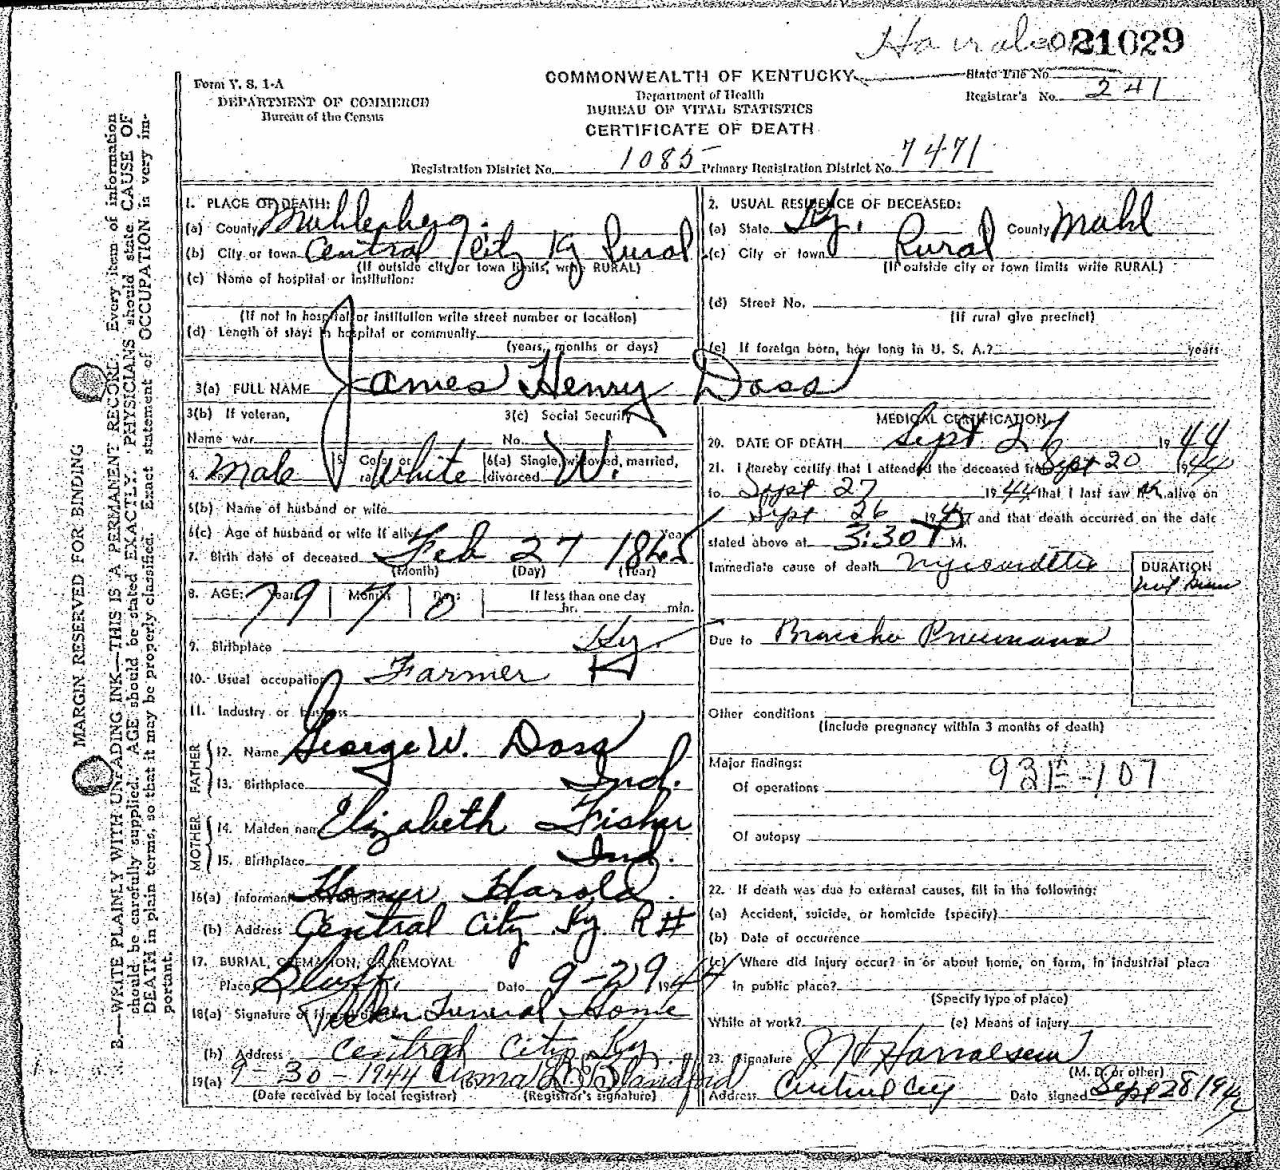 021029
Form V. S. 1-A
DEPARTMENT OF COMMERCE
Bureau of the Census
COMMONWEALTH OF KENTUCKY
Department of Health
BUREAU OF VITAL STATISTICS
CERTIFICATE OF DEATH
State File No.
Registrar's No. 241
Registration District No. 1085 Primary Registration District No. 7471
MARGIN RESERVED FOR BINDING
B.—WRITE PLAINLY WITH UNFADING INK—THIS IS A PERMANENT RECORD. Every item of information
should be carefully supplied. AGE should be stated EXACTLY. PHYSICIANS should state CAUSE OF
DEATH in plain terms, so that it may be properly classified. Exact statement of OCCUPATION is very im-
portant.
1. PLACE OF DEATH:
(a) County Muhlenberg.
(b) City or town Central City Ky Rural
(If outside city or town limits, write RURAL)
(c) Name of hospital or institution:
(If not in hospital or institution write street number or location)
(d) Length of stay: In hospital or community
(years, months or days)
2. USUAL RESIDENCE OF DECEASED:
(a) State Ky. County Muhl
(c) City or town Rural
(If outside city or town limits write RURAL)
(d) Street No.
(If rural give precinct)
(e) If foreign born, how long in U. S. A.? years
3(a) FULL NAME James Henry Doss
3(b) If veteran, 3(c) Social Security
Name war No.
4. Sex Male 5. Color or race White 6(a) Single, widowed, married, divorced W.
6(b) Name of husband or wife
6(c) Age of husband or wife if alive Years
7. Birth date of deceased Feb 27 1865
(Month) (Day) (Year)
8. AGE: Years 79 Months 7 Days 0 If less than one day
hr. min.
9. Birthplace Ky.
10. Usual occupation Farmer
11. Industry or business
FATHER
12. Name George W. Doss
13. Birthplace Ind.
MOTHER
14. Maiden name Elizabeth Fisher
15. Birthplace Ind.
16(a) Informant's own signature Homer Harold
(b) Address Central City Ky. R#
17. BURIAL, CREMATION, OR REMOVAL
Place Date 9-29 1944
18(a) Signature of funeral director Tucker Funeral Home
(b) Address Central City Ky.
19(a) 9-30-1944 (b)
(Date received by local registrar) (Registrar's signature)
MEDICAL CERTIFICATION
20. DATE OF DEATH Sept 26 1944
21. I hereby certify that I attended the deceased from Sept 20 1944
to Sept 27 1944 that I last saw him alive on
Sept 26 1944 and that death occurred on the date
stated above at 3:30 P M.
Immediate cause of death Myocarditis
DURATION
Due to Broncho Pneumonia
Other conditions
(Include pregnancy within 3 months of death)
Major findings: 93E-107
Of operations
Of autopsy
22. If death was due to external causes, fill in the following:
(a) Accident, suicide, or homicide (specify)
(b) Date of occurrence
(c) Where did injury occur? in or about home, on farm, in industrial place
in public place?
(Specify type of place)
While at work? (e) Means of injury
23. Signature
(M. D. or other)
Address Central City Date signed Sept 28 1944